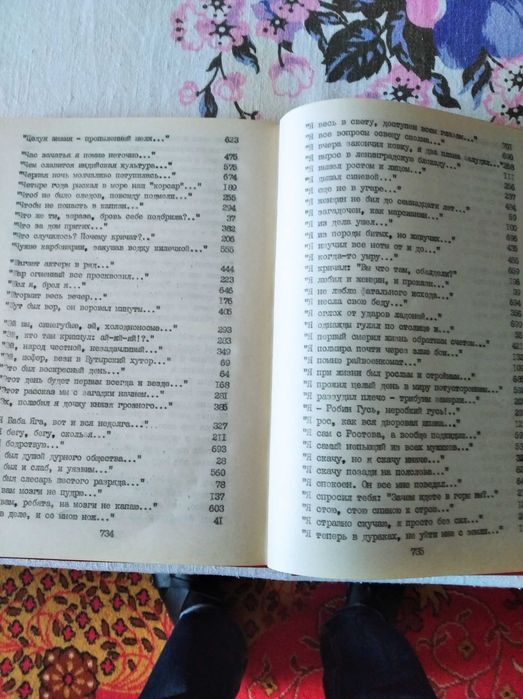 "Целуя знамя - пропыленный шелк..." 623
"Час зачатья я помню неточно..." 475
"Чем славится индийская культура..." 575
"Черная ночь молчанию потупилась..." 674
"Четыре года рыскал в море наш "корсар"..." 189
"Чтоб не было следов, повсюду подмели..." 255
"Чтобы не попасть в капкан..." 294
"Что же ты, зараза, бровь себе подбрила?.." 37
"Что за дом притих..." 382
"Что случилось? Почему кричат?.." 206
"Чужие карбонарии, закушав водку килечкой..." 555
444
"Шар огненный все просквозил..." 223
"Шел я, брел я..." 646
"Штормит весь вечер..." 176
"Шут был, вор, он воровал минуты..." 405
293
"Эй, кто там крикнул: ай-яй-яй!?.." 283
"Эй, народ честной, незадачливый!.." 349
"Эй, шофер, вези в Бутырский хутор..." 69
"Это был воскресный день..." 64
"Этот день будет первым всегда и везде..." 168
"Этот рассказ мы с загадки начнем..." 231
"Эх, полюбил я дочку князя грозного..." 385
Я Баба Яга, вот и вся недолга..." 327
бегу, бегу, скользя..." 211
бодрствую..." 693
был душой дурного общества..." 28
был и слаб, и уязвим..." 560
был слесарь шестого разряда..." 78
вам мозги не пудрю..." 137
вам, ребята, на мозги не капаю..." 603
в деле, и со мною нож..." 41
734
"Я весь в свету, доступен всем глазам..."
"Я все вопросы освещу сполна..."
"Я вчера закончил ковку, я два плана
"Я вырос в ленинградскую блокаду..."
"Я вышел ростом и лицом..."
"Я дышал синевой..."
"Я еще не в угаре..."
"Я женщин не бил до семнадцати лет..."
"Я загадочен, как марсианин..."
"Я из дела ушел..."
"Я из породы битых, но живучих..."
"Я изучил все ноты от и до..."
"Я когда-то умру..."
"Я кричал: "Вы что там, обалдели?"
"Я любил и женщин, и проказы..."
"Я не люблю фатального исхода..."
"Я несла свою беду..."
"Я оглох от ударов ладоней..."
"Я однажды гулял по столице и..."
"Я первый смерил жизнь обратным счетом..."
"Я полмира почти через злые бои..."
"Я помню райвоенкомат..."
"Я при жизни был рослым и стройным..."
"Я прожил целый день в миру потустороннем..."
"Я раздвудил плечо - трибуны замерли..."
"Я - Робин Гусь, неробкий гусь!.."
"Я рос, как вся дворовая шпана..."
"Я сам с Ростова, а вообще подкидыш..."
"Я самый непьющий из всех мужиков..."
"Я скачу, но я скачу иначе..."
"Я скачу позади на полслова..."
"Я спокоен. Он все мне поведал..."
"Я спросил тебя: "Зачем идете в горы вы?.."
"Я стою, стою спиною к строю..."
"Я странно скучаю, я просто без сил..."
"Я теперь в дураках, не уйти мне с земли..."
735